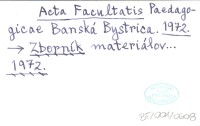 Acta Facultatis Paedago-
gicae Banská Bystrica. 1972.
→ Zborník materiálov...
1972.